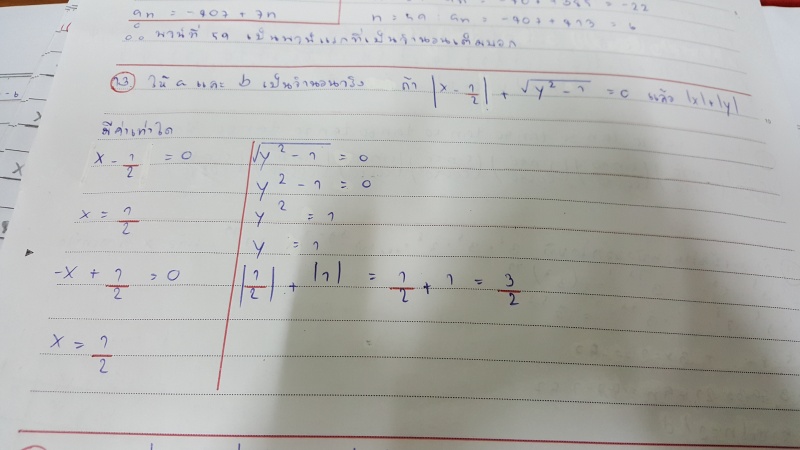 an = -407 + 7n
n = 59 an = -407 + 413 = 6
= -22
∴ พจน์ที่ 59 เป็นพจน์แรกที่เป็นจำนวนเต็มบวก
23 ให้ a และ b เป็นจำนวนจริง ถ้า |x - 1/2| + √(y² - 1) = 0 แล้ว |x|+|y|
มีค่าเท่าใด
x - 1/2 = 0
x = 1/2
-x + 1/2 = 0
x = 1/2
√(y² - 1) = 0
y² - 1 = 0
y² = 1
y = 1
|1/2| + |1| = 1/2 + 1 = 3/2